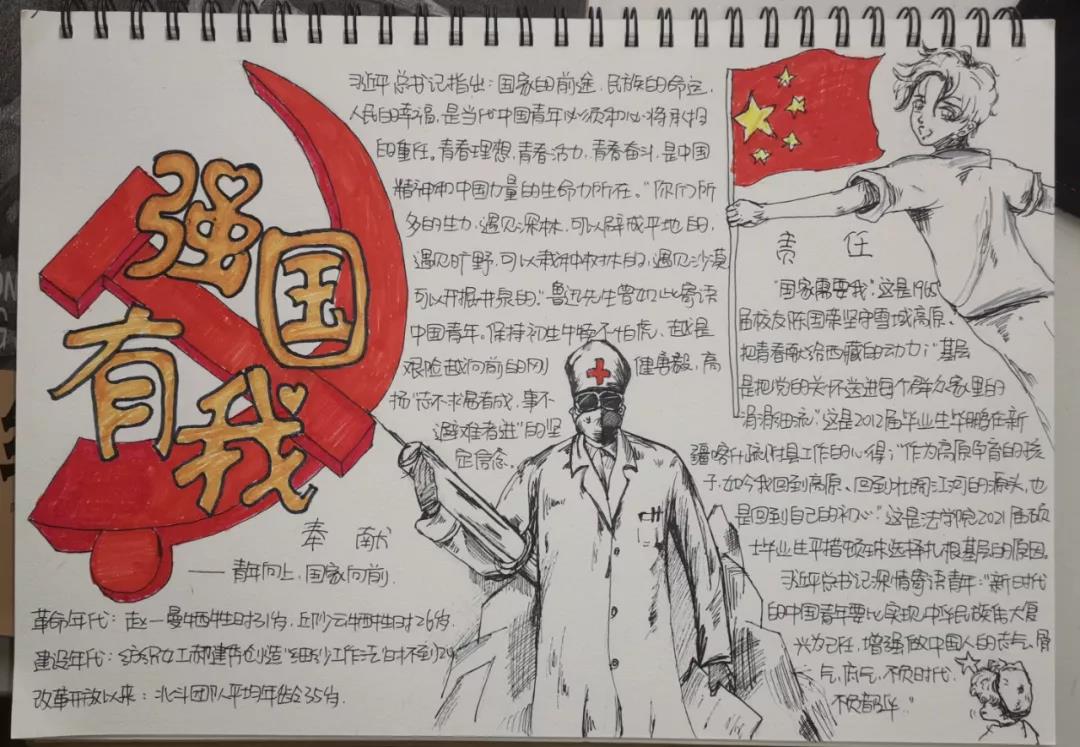 强国
有我
习近平总书记指出：国家的前途，民族的命运，
人民的幸福，是当代中国青年必须和必将承担
的重任。青春理想，青春活力，青春奋斗，是中国
精神和中国力量的生命力所在。"你们所
多的生力，遇见深林，可以辟成平地的，
遇见旷野，可以栽种树木的，遇见沙漠
可以开掘井泉的"鲁迅先生曾如此寄语
中国青年。保持初生牛犊不怕虎、越是
艰险越向前的刚健勇毅，高
扬"志不求易者成，事不
避难者进"的坚
定信念。
奉献
——青年向上，国家向前.
革命年代：赵一曼牺牲时31岁，邱少云牺牲时26岁.
建设年代：纺织女工郝建秀创造"细纱工作法"时不到
改革开放以来：北斗团队平均年龄35岁.
责任
"国家需要我"，这是1965
届校友陈国荣坚守雪域高原、
把青春献给西藏的动力；"基层
是把党的关怀送进每个群众家里的
涓涓细流"，这是2012届毕业生毕鹏在新
疆喀什疏附县工作的心得；"作为高原孕育的孩
子，如今我回到高原、回到壮阔江河的源头，也
是回到自己的初心"这是法学院2021届硕
士毕业生平措顿珠选择扎根基层的原因。
习近平总书记深情寄语青年："新时代
的中国青年要以实现中华民族伟大复
兴为己任，增强做中国人的志气、骨
气、底气，不负时代，
不负韶华."